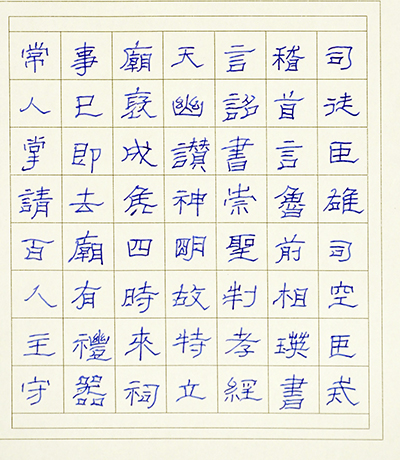 司徒臣雄司空臣戒
稽首言魯前相瑛書
言詔書崇聖制孝經
天幽讚神眀故特立
廟褒成侯四時來祠
事已即去廟有禮器
常人掌請百人主守